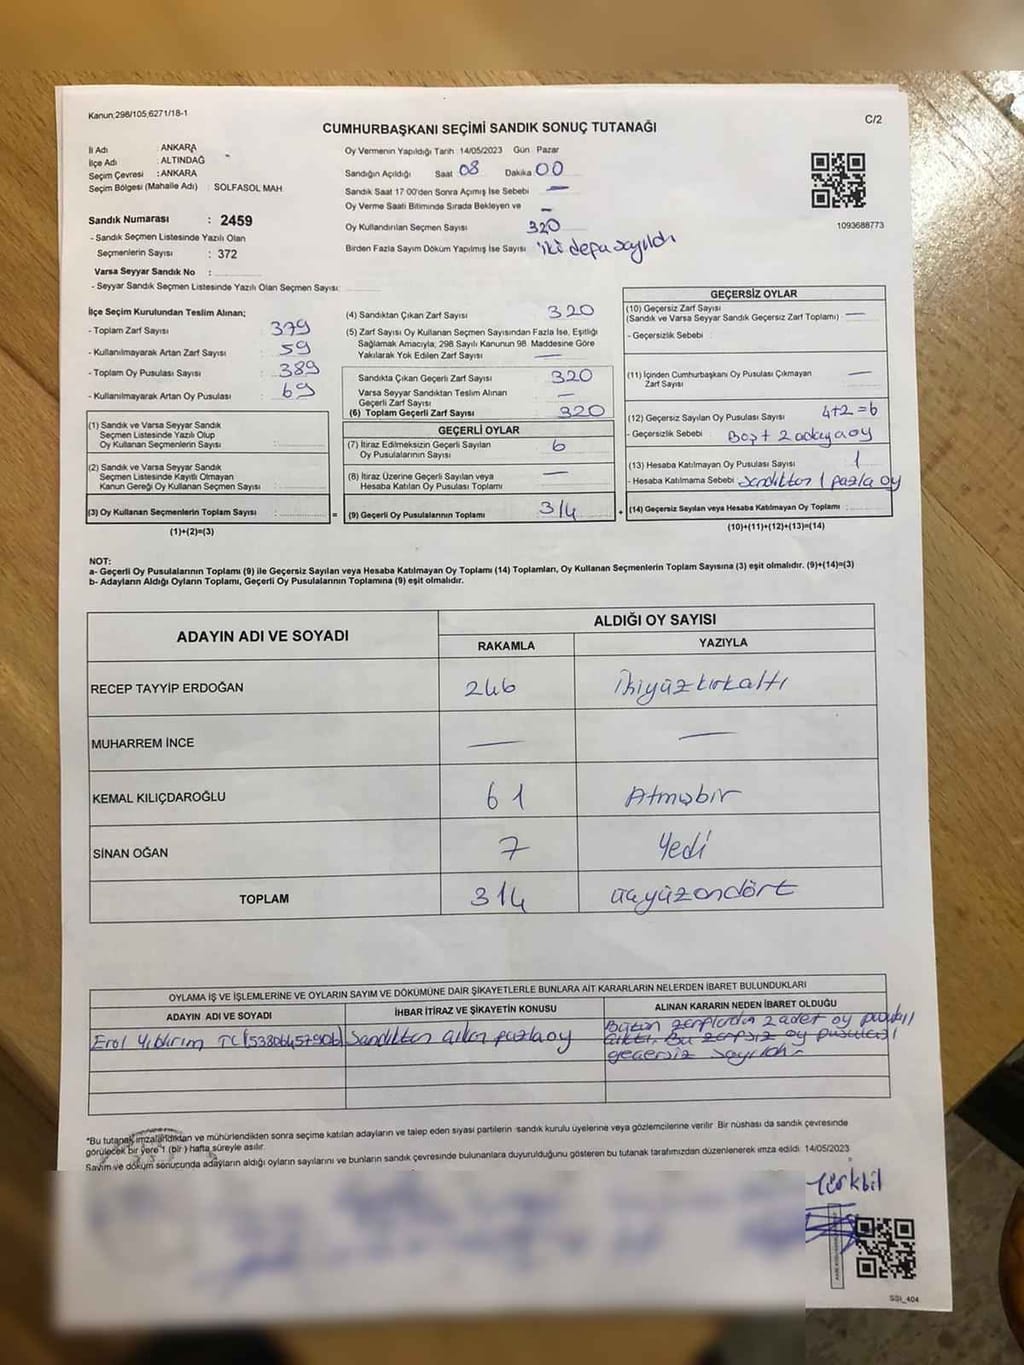 Kanun;298/105;6271/18-1
C/2
CUMHURBAŞKANI SEÇİMİ SANDIK SONUÇ TUTANAĞI
İli Adı : ANKARA
İlçe Adı : ALTINDAĞ
Seçim Çevresi : ANKARA
Seçim Bölgesi (Mahalle Adı) : SOLFASOL MAH
Sandık Numarası : 2459
- Sandık Seçmen Listesinde Yazılı Olan
Seçmenlerin Sayısı : 372
Varsa Seyyar Sandık No :
- Seyyar Sandık Seçmen Listesinde Yazılı Olan Seçmen Sayısı:
Oy Vermenin Yapıldığı Tarih :14/05/2023 Gün :Pazar
Sandığın Açıldığı Saat 08 Dakika 00
Sandık Saat 17 00'den Sonra Açımış İse Sebebi —
Oy Verme Saati Bitiminde Sırada Bekleyen ve —
Oy Kullandırılan Seçmen Sayısı 320
Birden Fazla Sayım Döküm Yapılmış İse Sayısı iki defa sayıldı
1093688773
İlçe Seçim Kurulundan Teslim Alınan;
- Toplam Zarf Sayısı 379
- Kullanılmayarak Artan Zarf Sayısı 59
- Toplam Oy Pusulası Sayısı 389
- Kullanılmayarak Artan Oy Pusulası 69
(1) Sandık ve Varsa Seyyar Sandık
Seçmen Listesinde Yazılı Olup
Oy Kullanan Seçmenlerin Sayısı :
(2) Sandık ve Varsa Seyyar Sandık
Seçmen Listesinde Kayıtlı Olmayan
Kanun Gereği Oy Kullanan Seçmen Sayısı :
(3) Oy Kullanan Seçmenlerin Toplam Sayısı :
(1)+(2)=(3)
(4) Sandıktan Çıkan Zarf Sayısı 320
(5) Zarf Sayısı Oy Kullanan Seçmen Sayısından Fazla İse, Eşitliği
Sağlamak Amacıyla; 298 Sayılı Kanunun 98. Maddesine Göre
Yakılarak Yok Edilen Zarf Sayısı —
Sandıkta Çıkan Geçerli Zarf Sayısı 320
Varsa Seyyar Sandıktan Teslim Alınan
Geçerli Zarf Sayısı —
(6) Toplam Geçerli Zarf Sayısı 320
GEÇERLİ OYLAR
(7) İtiraz Edilmeksizin Geçerli Sayılan
Oy Pusulalarının Sayısı 6
(8) İtiraz Üzerine Geçerli Sayılan veya
Hesaba Katılan Oy Pusulası Toplamı —
= (9) Geçerli Oy Pusulalarının Toplamı 314
GEÇERSİZ OYLAR
(10) Geçersiz Zarf Sayısı
(Sandık ve Varsa Seyyar Sandık Geçersiz Zarf Toplamı) —
- Geçersizlik Sebebi
(11) İçinden Cumhurbaşkanı Oy Pusulası Çıkmayan
Zarf Sayısı —
(12) Geçersiz Sayılan Oy Pusulası Sayısı 4+2=6
- Geçersizlik Sebebi Boş + 2 adaya oy
(13) Hesaba Katılmayan Oy Pusulası Sayısı 1
- Hesaba Katılmama Sebebi Sandıktan 1 fazla oy
+ (14) Geçersiz Sayılan veya Hesaba Katılmayan Oy Toplamı :
(10)+(11)+(12)+(13)=(14)
NOT:
a- Geçerli Oy Pusulalarının Toplamı (9) ile Geçersiz Sayılan veya Hesaba Katılmayan Oy Toplamı (14) Toplamları, Oy Kullanan Seçmenlerin Toplam Sayısına (3) eşit olmalıdır. (9)+(14)=(3)
b- Adayların Aldığı Oyların Toplamı, Geçerli Oy Pusulalarının Toplamına (9) eşit olmalıdır.
ADAYIN ADI VE SOYADI
ALDIĞI OY SAYISI
RAKAMLA YAZIYLA
RECEP TAYYİP ERDOĞAN 246 İkiyüzkırkaltı
MUHARREM İNCE — —
KEMAL KILIÇDAROĞLU 61 Atmışbir
SİNAN OĞAN 7 Yedi
TOPLAM 314 üçyüzondört
OYLAMA İŞ VE İŞLEMLERİNE VE OYLARIN SAYIM VE DÖKÜMÜNE DAİR ŞİKAYETLERLE BUNLARA AİT KARARLARIN NELERDEN İBARET BULUNDUKLARI
ADAYIN ADI VE SOYADI İHBAR İTİRAZ VE ŞİKAYETİN KONUSU ALINAN KARARIN NEDEN İBARET OLDUĞU
Erol Yıldırım TC(15380645790) Sandıktan çıkan fazla oy
Bütün zarflardan 2 adet oy pusulası
çıktı. Bu zarfsız oy pusulası
geçersiz sayıldı
*Bu tutanak imzalandıktan ve mühürlendikten sonra seçime katılan adayların ve talep eden siyasi partilerin sandık kurulu üyelerine veya gözlemcilerine verilir Bir nüshası da sandık çevresinde
görülecek bir yere 1 (bir) hafta süreyle asılır.
Sayım ve döküm sonucunda adayların aldığı oyların sayılarını ve bunların sandık çevresinde bulunanlara duyurulduğunu gösteren bu tutanak tarafımızdan düzenlenerek imza edildi 14/05/2023
SSI_404